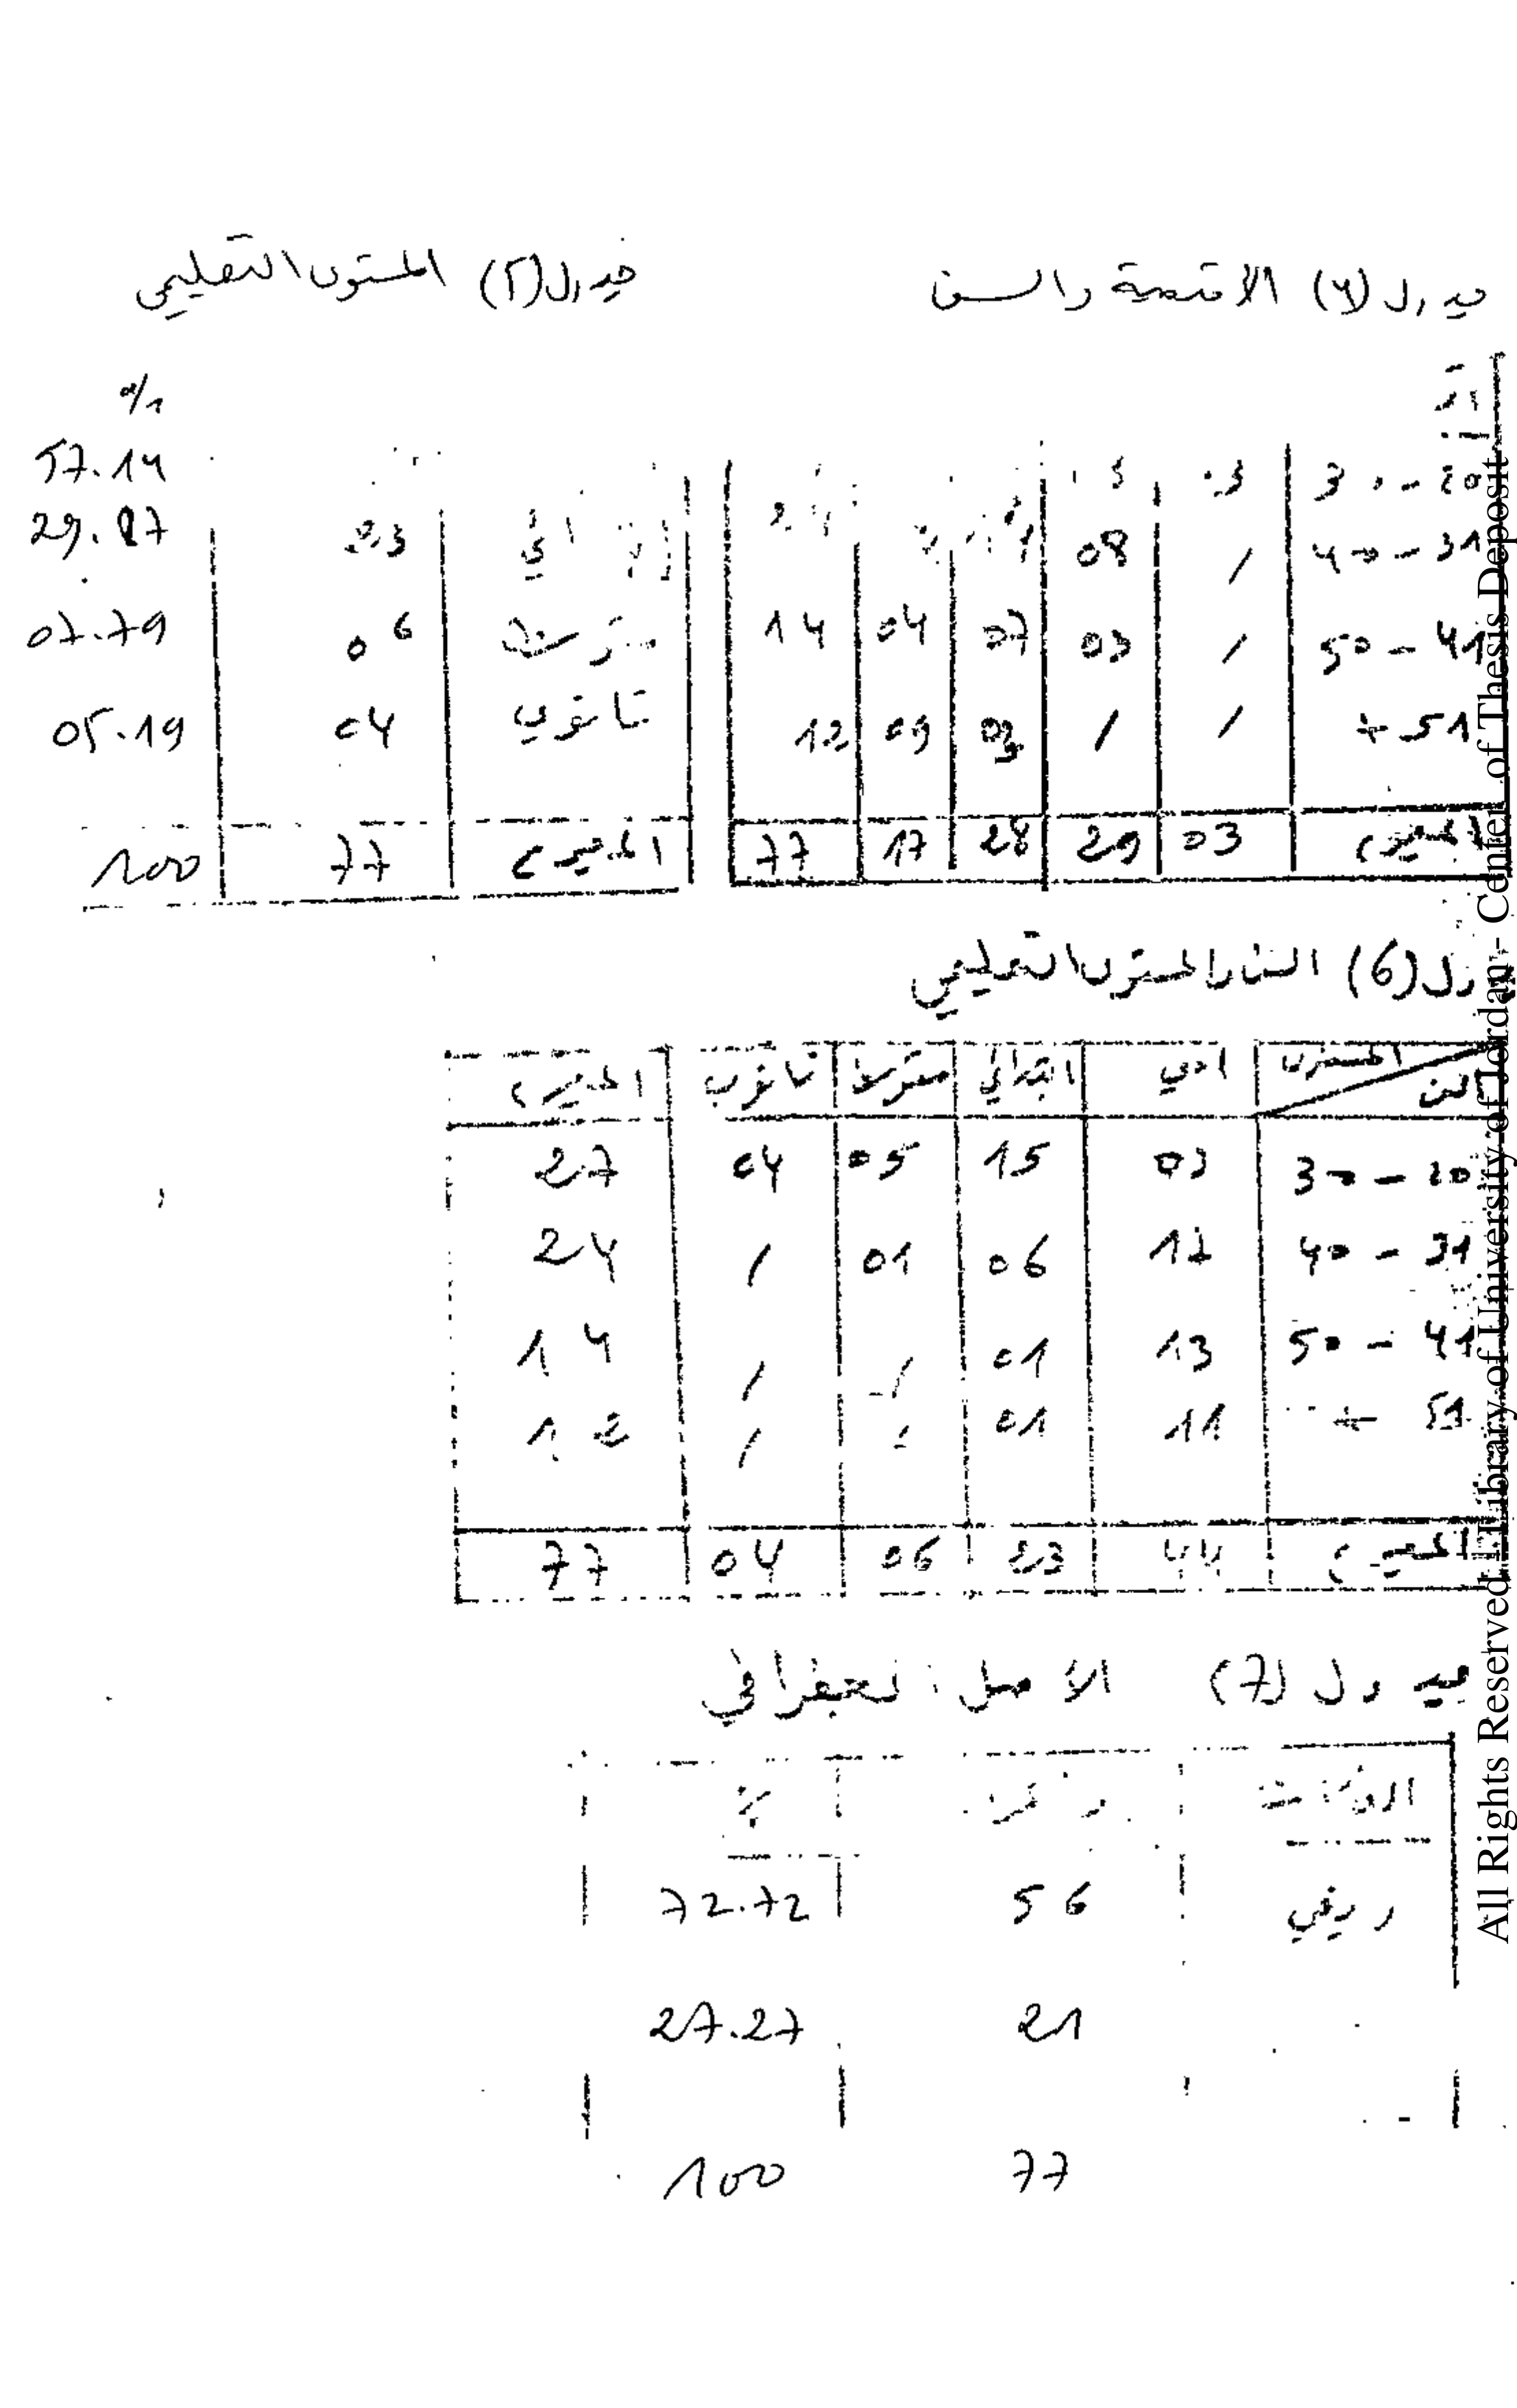 جدول (4) الاقدمية والسن
30 - 20 03
40 - 31 / 08
50 - 41 / 03 07 04 14
51 + / / 03 09 12
المجموع 03 29 28 17 77
جدول (5) المستوى التعليمي
%
57.14
23 29.87
متوسط 06 07.79
ثانوي 04 05.19
المجموع 77 100
جدول (6) السن والمستوى التعليمي
المستوى
السن امي ابتدائي متوسط ثانوي المجموع
30 - 20 03 15 05 04 27
40 - 31 17 06 01 / 24
50 - 41 13 01 / / 14
51 + 11 01 / / 12
المجموع 44 23 06 04 77
جدول (7) الاصل الجغرافي
الفئات %
ريفي 56 72.72
21 27.27
77 100
All Rights Reserved - Library of University of Jordan - Center of Thesis Deposit